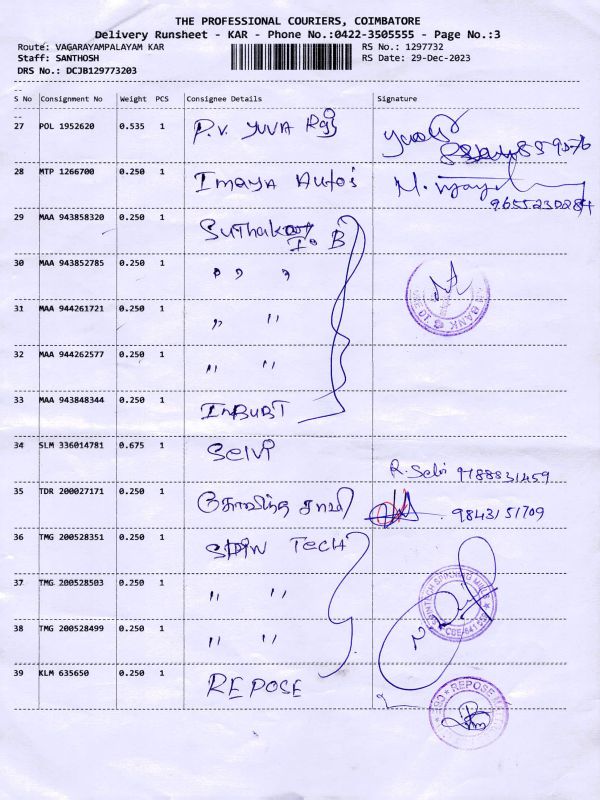 THE PROFESSIONAL COURIERS, COIMBATORE
Delivery Runsheet - KAR - Phone No.:0422-3505555 - Page No.:3
Route: VAGARAYAMPALAYAM KAR RS No.: 1297732
Staff: SANTHOSH RS Date: 29-Dec-2023
DRS No.: DCJB129773203
S No Consignment No Weight PCS Consignee Details Signature
27 POL 1952620 0.535 1 P.V. YUVA Raj
28 MTP 1266700 0.250 1 Imaya Autos
9655230284
29 MAA 943858320 0.250 1
I.O.B
30 MAA 943852785 0.250 1 " "
31 MAA 944261721 0.250 1 " "
BANK
32 MAA 944262577 0.250 1 " "
33 MAA 943848344 0.250 1
34 SLM 336014781 0.675 1 Selvi
R. Selvi
35 TDR 200027171 0.250 1 கோவிந்த சாமி 9843151709
36 TMG 200528351 0.250 1 SPIN TECH
37 TMG 200528503 0.250 1 " "
SPINTECH SPINNING MILL
38 TMG 200528499 0.250 1 " "
39 KLM 635650 0.250 1 REPOSE
REPOSE